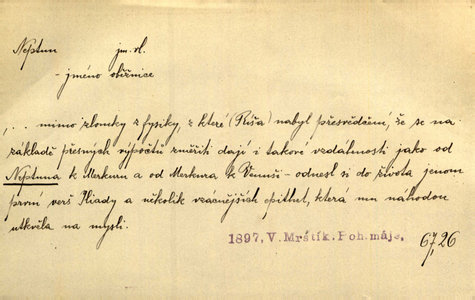 Neptun jm. vl.
- jméno oběžnice
"... mimo zlomky z fysiky, z které (Ríša) nabyl přesvědčení, že se na
základě přesných výpočtů změřiti dají i takové vzdálenosti jako od
Neptuna k Merkuru a od Merkura k Venuši - odnesl si do života jenom
první verš Iliady a několik vzácnějších epithet, která mu náhodou
utkvěla na mysli.
1897, V. Mrštík. Poh. máje,
67, 26